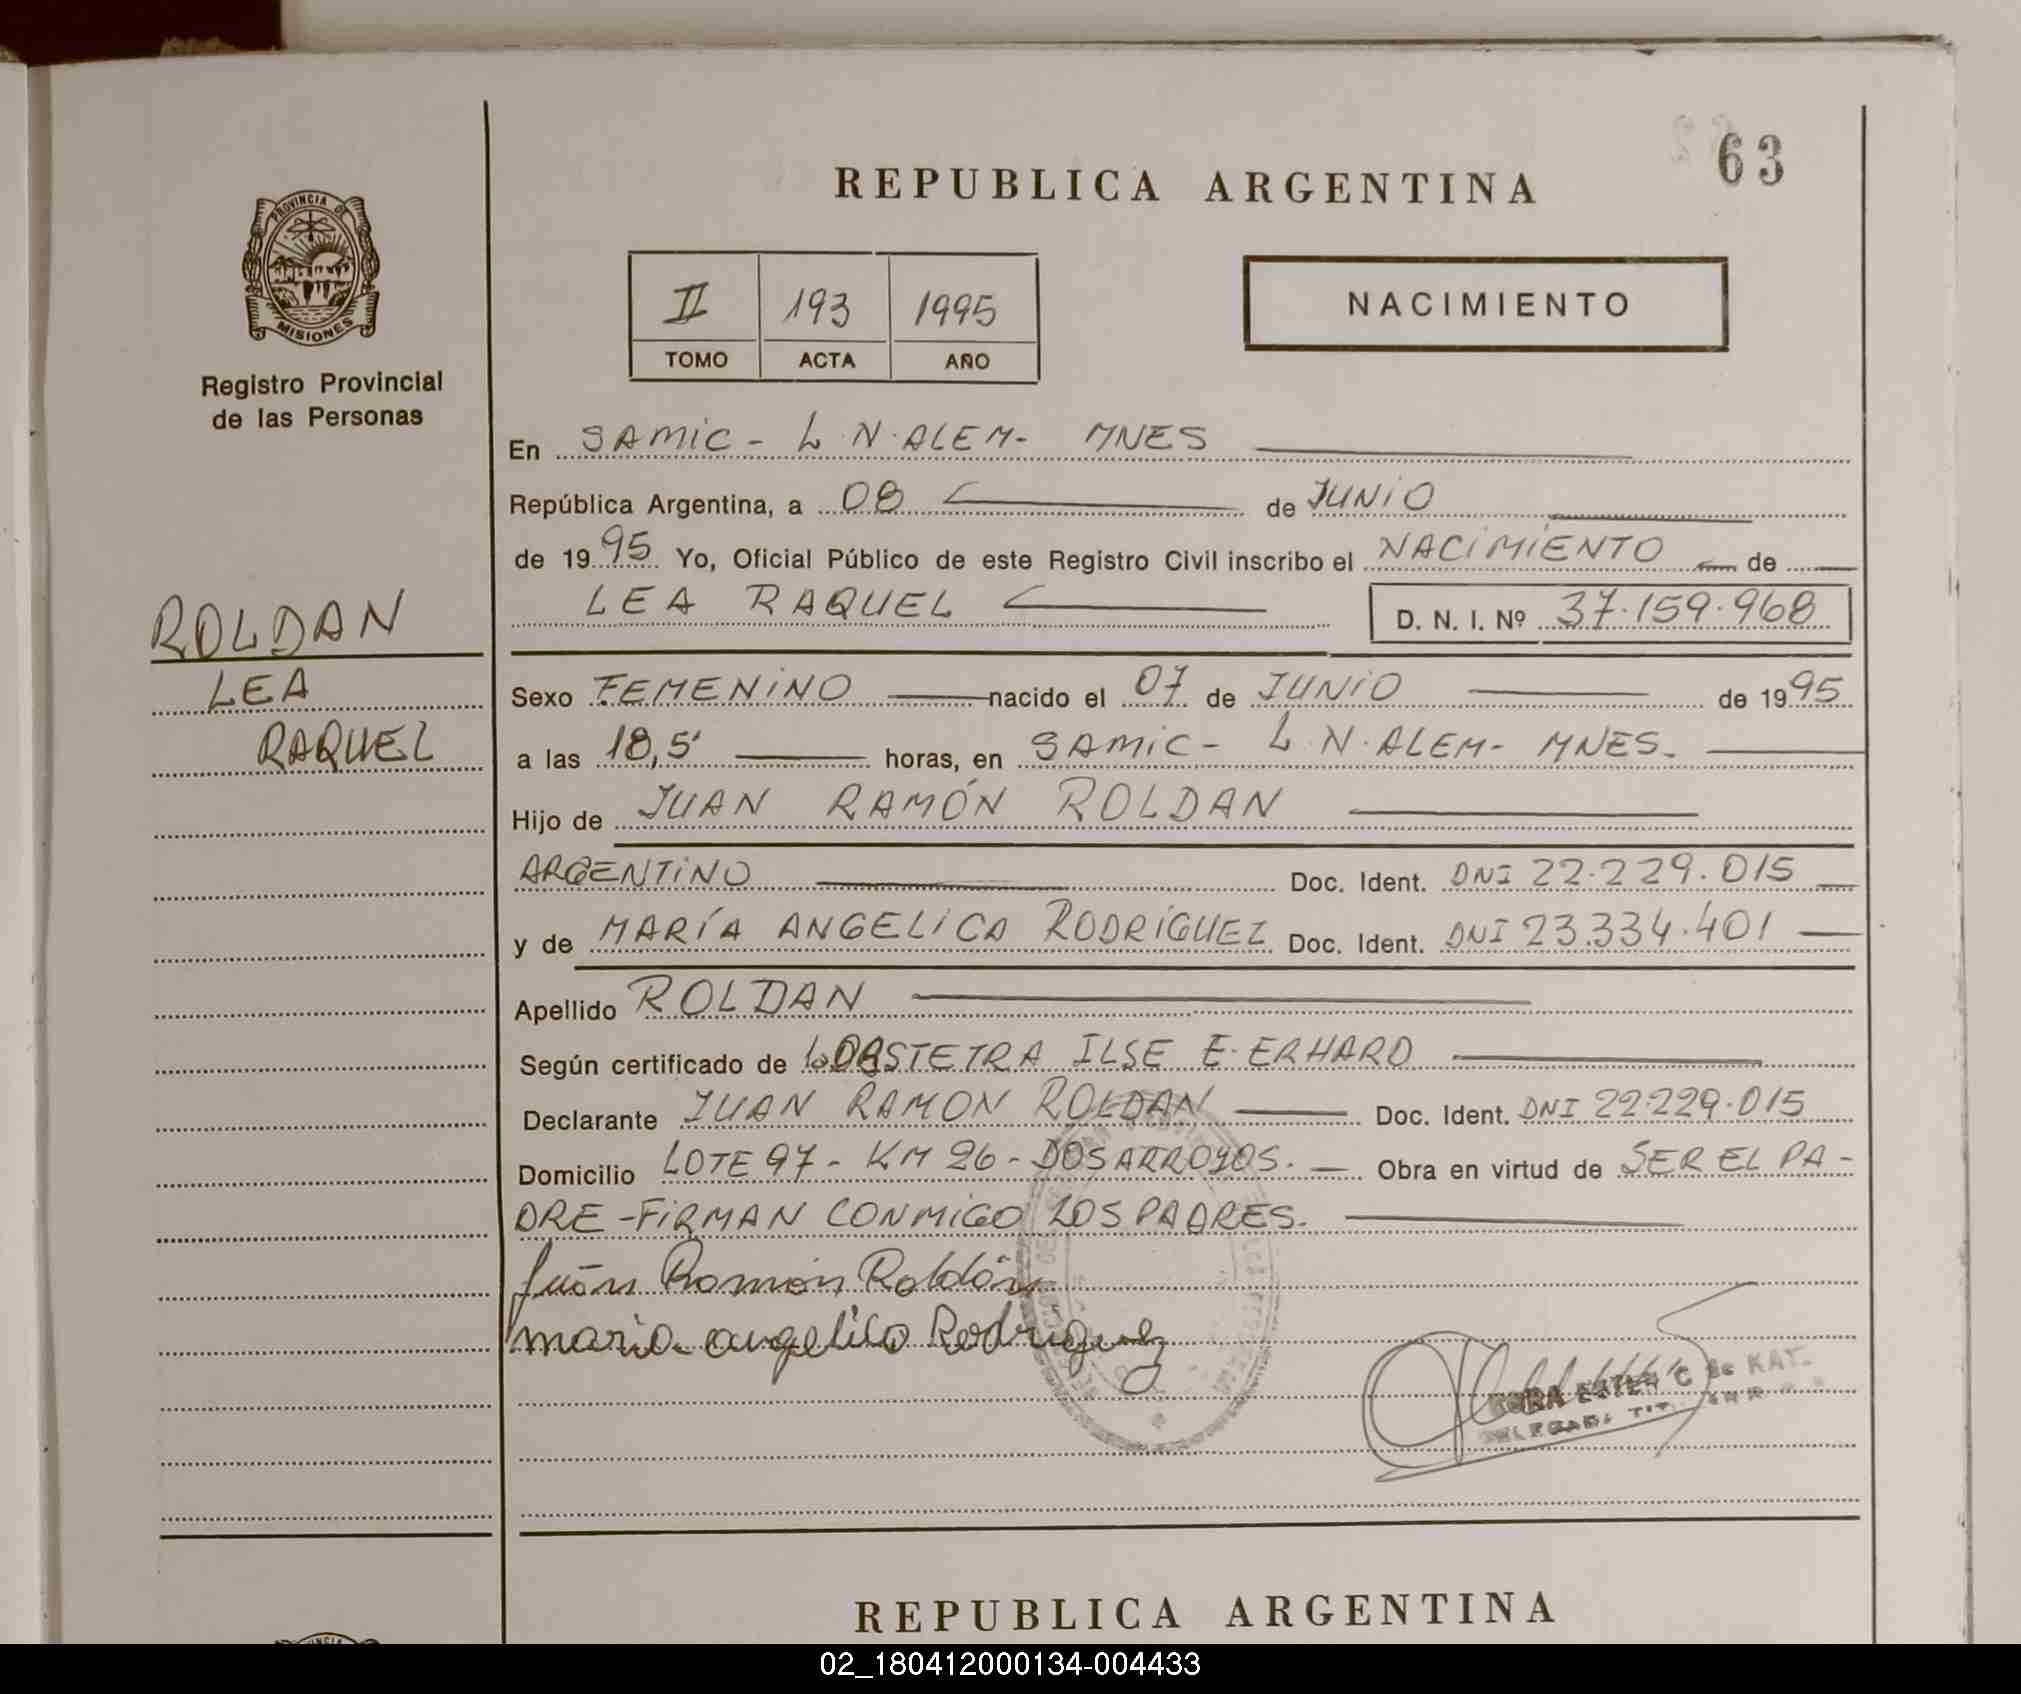 63
REPUBLICA ARGENTINA
PROVINCIA DE
MISIONES
Registro Provincial
de las Personas
II 193 1995
TOMO ACTA AÑO
NACIMIENTO
ROLDAN
LEA
RAQUEL
En SAMIC - L.N.ALEM- MNES
República Argentina, a 08 de JUNIO
de 1995 Yo, Oficial Público de este Registro Civil inscribo el NACIMIENTO de
LEA RAQUEL D. N. I. Nº 37.159.968
Sexo FEMENINO nacido el 07 de JUNIO de 1995
a las 18,5' horas, en SAMIC - L.N.ALEM- MNES.
Hijo de JUAN RAMÓN ROLDAN
ARGENTINO Doc. Ident. DNI 22.229.015
y de MARÍA ANGELICA RODRÍGUEZ Doc. Ident. DNI 23.334.401
Apellido ROLDAN
Según certificado de OBSTETRA ILSE E. ERHARD
Declarante JUAN RAMON ROLDAN Doc. Ident. DNI 22.229.015
Domicilio LOTE 97 - KM 26 - DOS ARROYOS. Obra en virtud de SER EL PA-
DRE - FIRMAN CONMIGO LOS PADRES.
Juán Ramón Roldán
maria angelica Rodriguez
ESTER C de KAT
REPUBLICA ARGENTINA
02_180412000134-004433